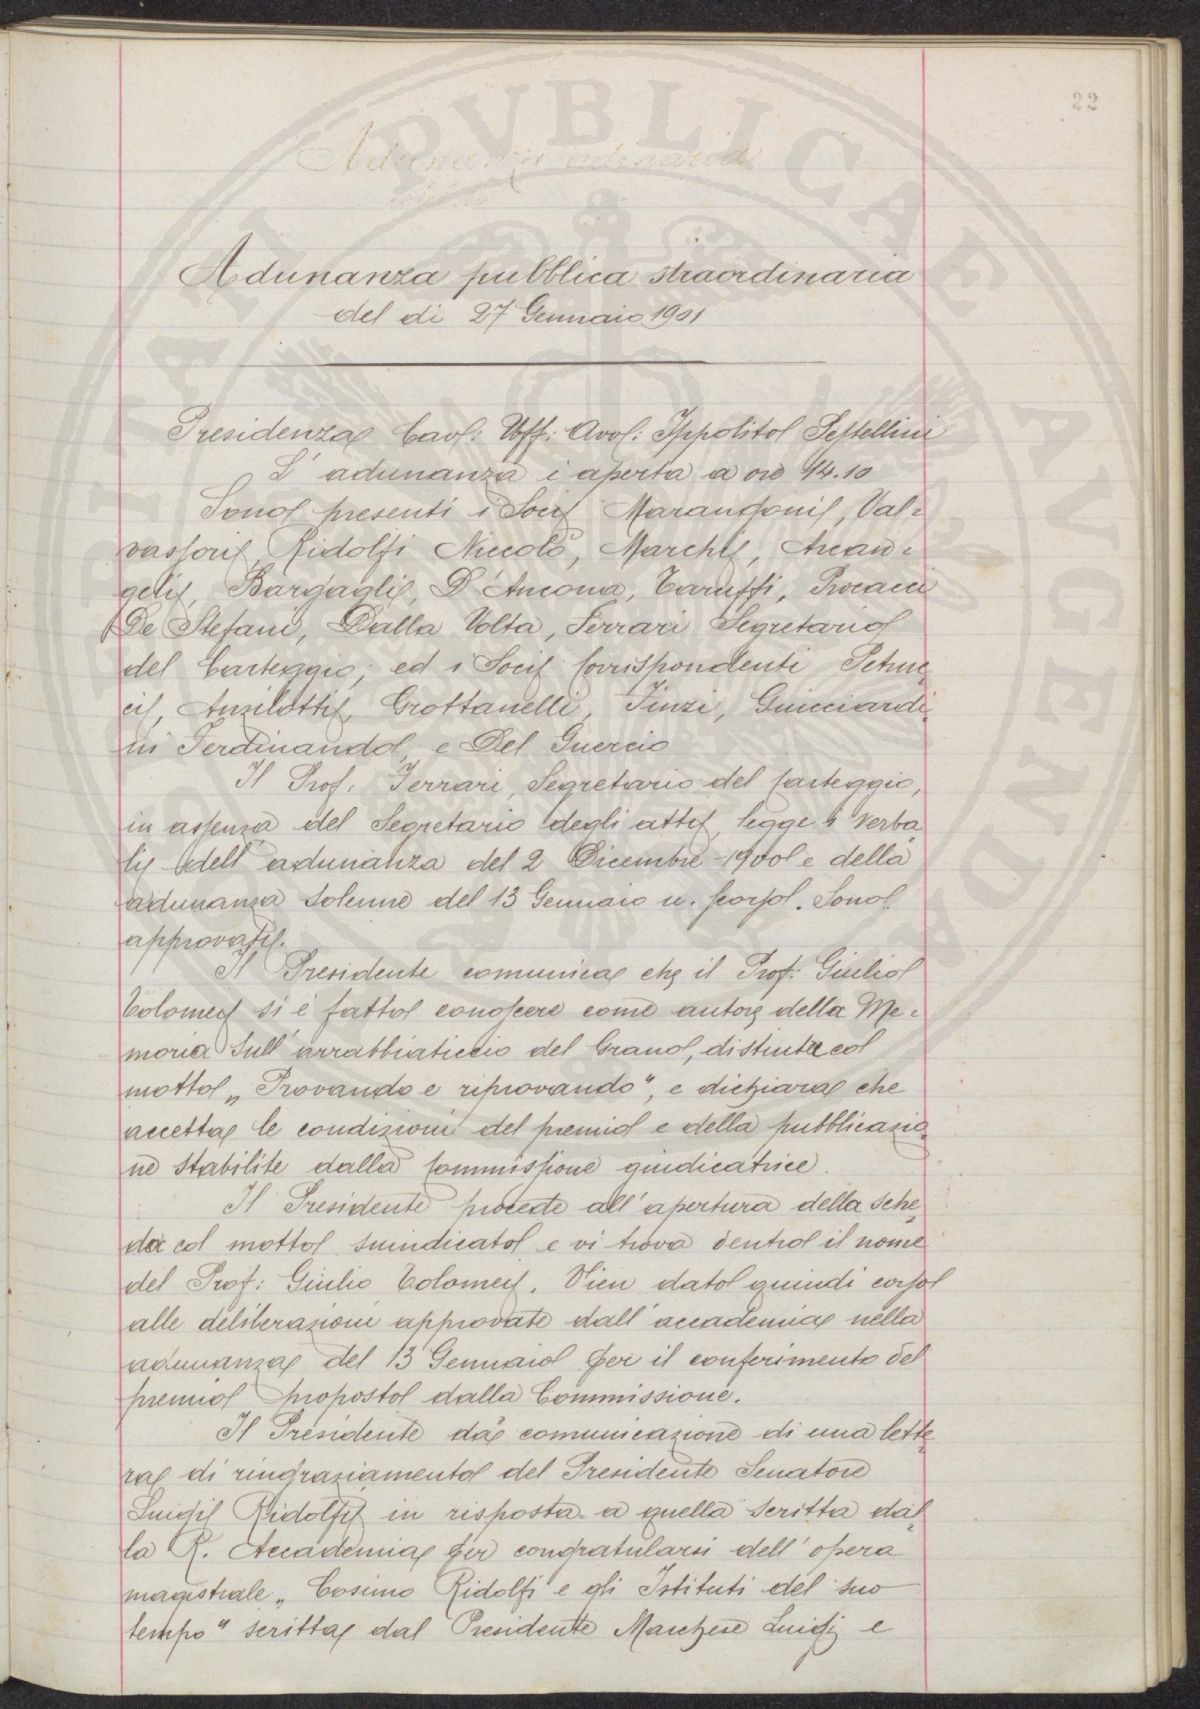 22
Adunanza ordinaria
Adunanza pubblica straordinaria
del di 27 Gennaio 1901
Presidenza Cav: Uff: Avv: Ippolito Pestellini
L' adunanza è aperta a ore 14.10
Sono presenti i Soci Marangoni, Val=
vassori, Ridolfi Niccolò, Marchi, Arcan=
geli, Bargagli, D'Ancona, Taruffi, Procacci
De Stefani, Dalla Volta, Ferrari Segretario
del Carteggio, ed i Soci Corrispondenti Petruc
ci, Anzilotti, Grottanelli, Finzi, Guicciardi
ni Ferdinando, e Del Guercio
Il Prof. Ferrari, Segretario del Carteggio,
in assenza del Segretario degli atti, legge i verba
li dell' adunanza del 2 Dicembre 1900 e della
adunanza solenne del 13 Gennaio u. scorso. Sono
approvati.
Il Presidente comunica che il Prof: Giulio
Tolomei si è fatto conoscere come autore della Me=
moria sull' arrabbiaticcio del Grano, distinta col
motto „ Provando e riprovando", e dichiara che
accetta le condizioni del premio e della pubblicazio
ne stabilite dalla Commissione giudicatrice.
Il Presidente procede all' apertura della sche
da col motto suindicato e vi trova dentro il nome
del Prof: Giulio Tolomei. Vien dato quindi corso
alle deliberazioni approvate dall' accademia nella
adunanza del 13 Gennaio per il conferimento del
premio proposto dalla Commissione.
Il Presidente dà comunicazione di una lette
ra di ringraziamento del Presidente Senatore
Luigi Ridolfi in risposta a quella scritta dal
la R. Accademia per congratularsi dell' opera
magistrale „ Cosimo Ridolfi e gli Istituti del suo
tempo" scritta dal Presidente Marchese Luigi e
PUBLICAE AUGENDAE